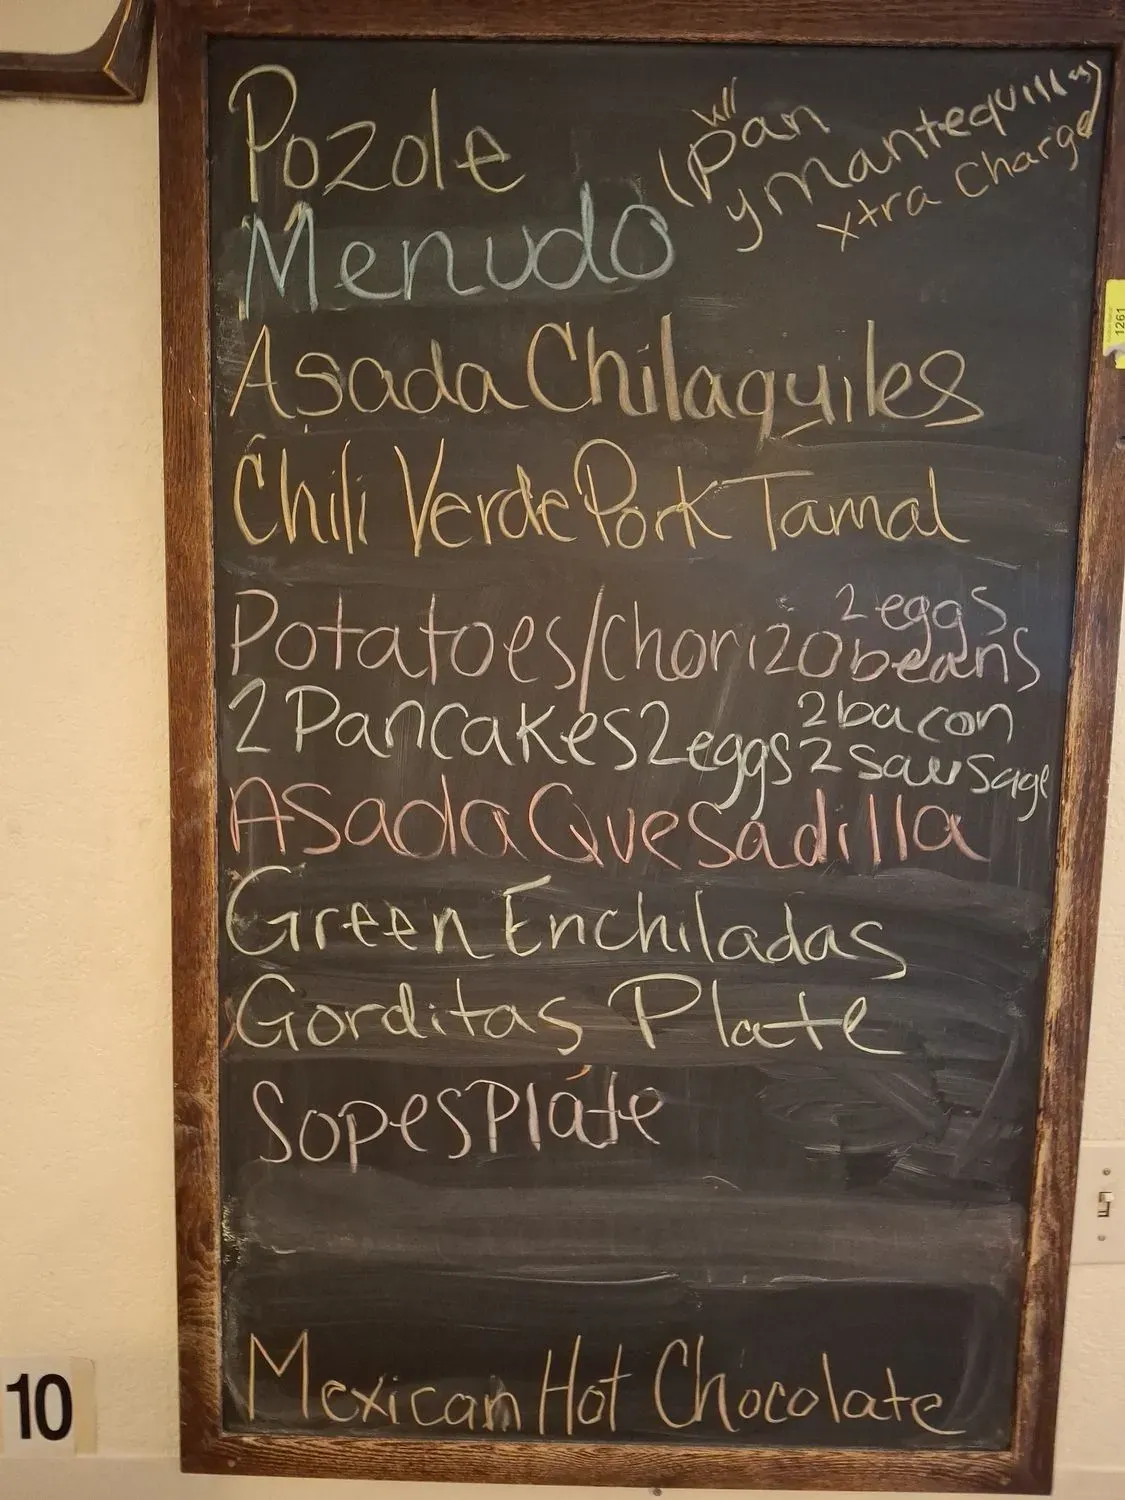 Pozole
(w/ pan
y mantequilla)
xtra Charge
Menudo
Asada Chilaquiles
Chili Verde Pork Tamal
Potatoes/chorizo 2 eggs
beans
2 Pancakes 2 eggs 2 bacon
2 sausage
Asada Quesadilla
Green Enchiladas
Gorditas Plate
Sopes Plate
Mexican Hot Chocolate
10
1261